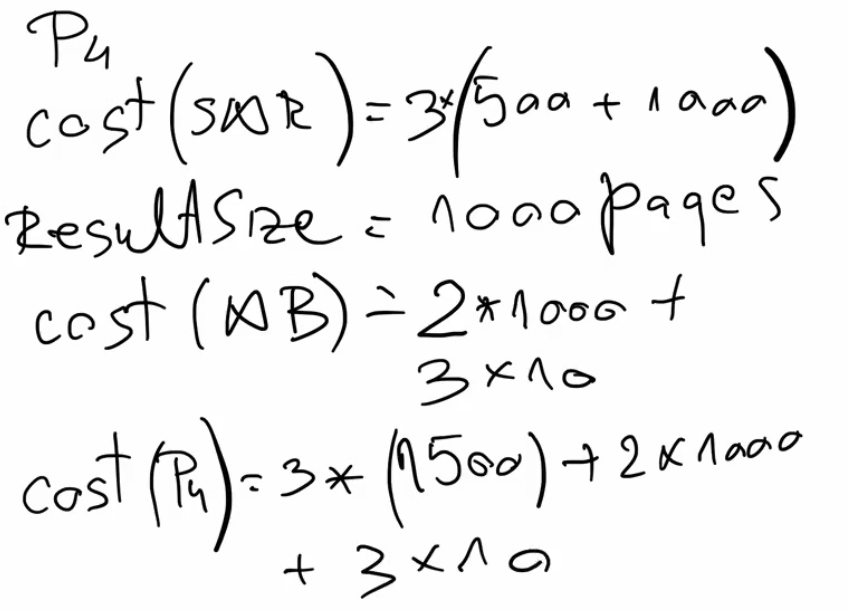 P4
cost(S⋈R) = 3*(500 + 1000)
Result Size = 1000 pages
cost(⋈B) = 2*1000 +
3×10
cost(P4) = 3*(1500) + 2×1000
+ 3×10